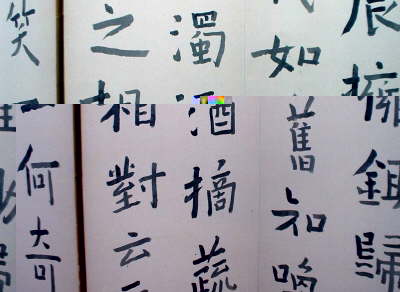 晨擁歸
如舊知喚
濁酒摘蔬
之相對云
笑何奇